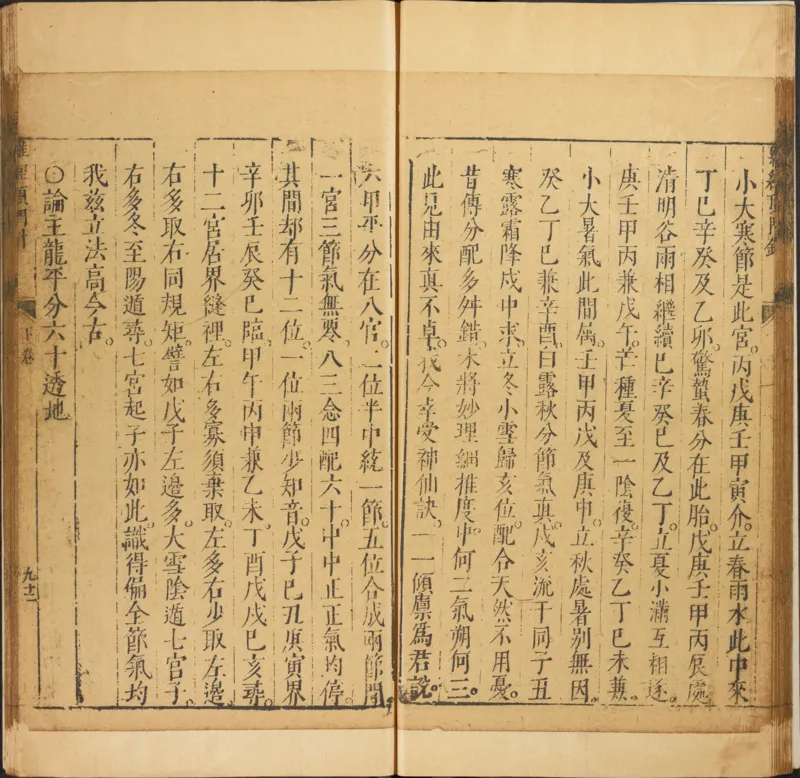 小大寒節是此宮丙戊庚壬甲寅介立春雨水此中來
丁巳辛癸及乙卯驚蟄春分在此胎戊庚壬甲丙辰處
清明谷雨相繼續巳辛癸巳及乙丁立夏小滿互相逐
庚壬甲丙兼戊午芒種夏至一陰復辛癸乙丁巳未兼
小大暑氣此間属壬甲丙戊及庚申立秋處暑别無因
癸乙丁巳兼辛酉白露秋分節氣真戊亥流干同子丑
寒露霜降戍中求立冬小雪歸亥位配合天然不用憂
昔傳分配多舛錯未將妙理細推度中何二氣朔何三
此見由來真不卓我今幸受神仙訣一一傾廪爲君說
六甲平分在八宫二位半中統一節五位合成兩節間
一宮三節氣無零八三念四配六十中中正正氣均停
其間却有十二位一位兩節少知音戊子巳丑庚寅界
辛卯壬辰癸巳臨甲午丙申兼乙未丁酉戊戍巳亥尋
十二宮居界縫裡左右多寡須棄取左多右少取左邊
右多取右同規矩譬如戊子左邊多大雪陰遁七宮子
右多冬至陽遁尋七宮起子亦如此識得偏全節氣均
我兹立法高今古
○論王龍平分六十透地
下卷